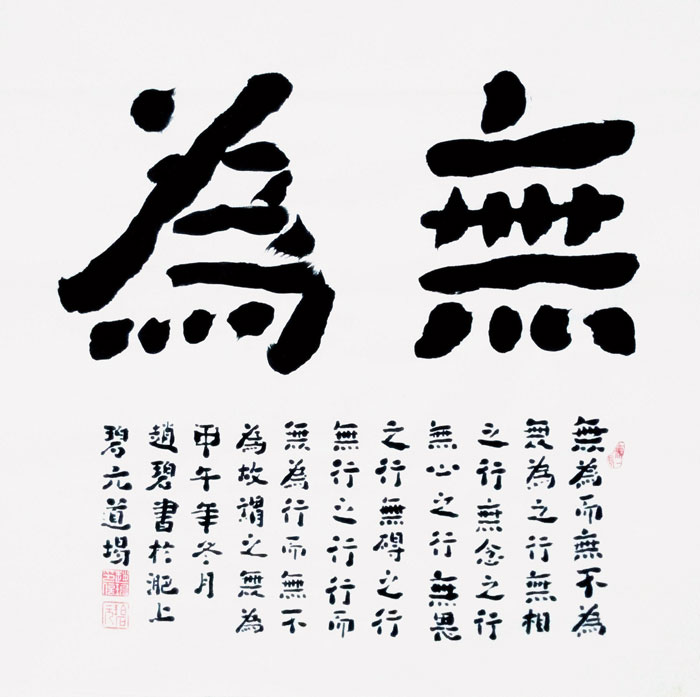 無為
無為而無不為
無為之行無相
之行無念之行
無心之行無畏
之行無碍之行
無行之行行而
無為行而無不
為故謂之無為
甲午年冬月
趙碧書於淝上
碧元道場